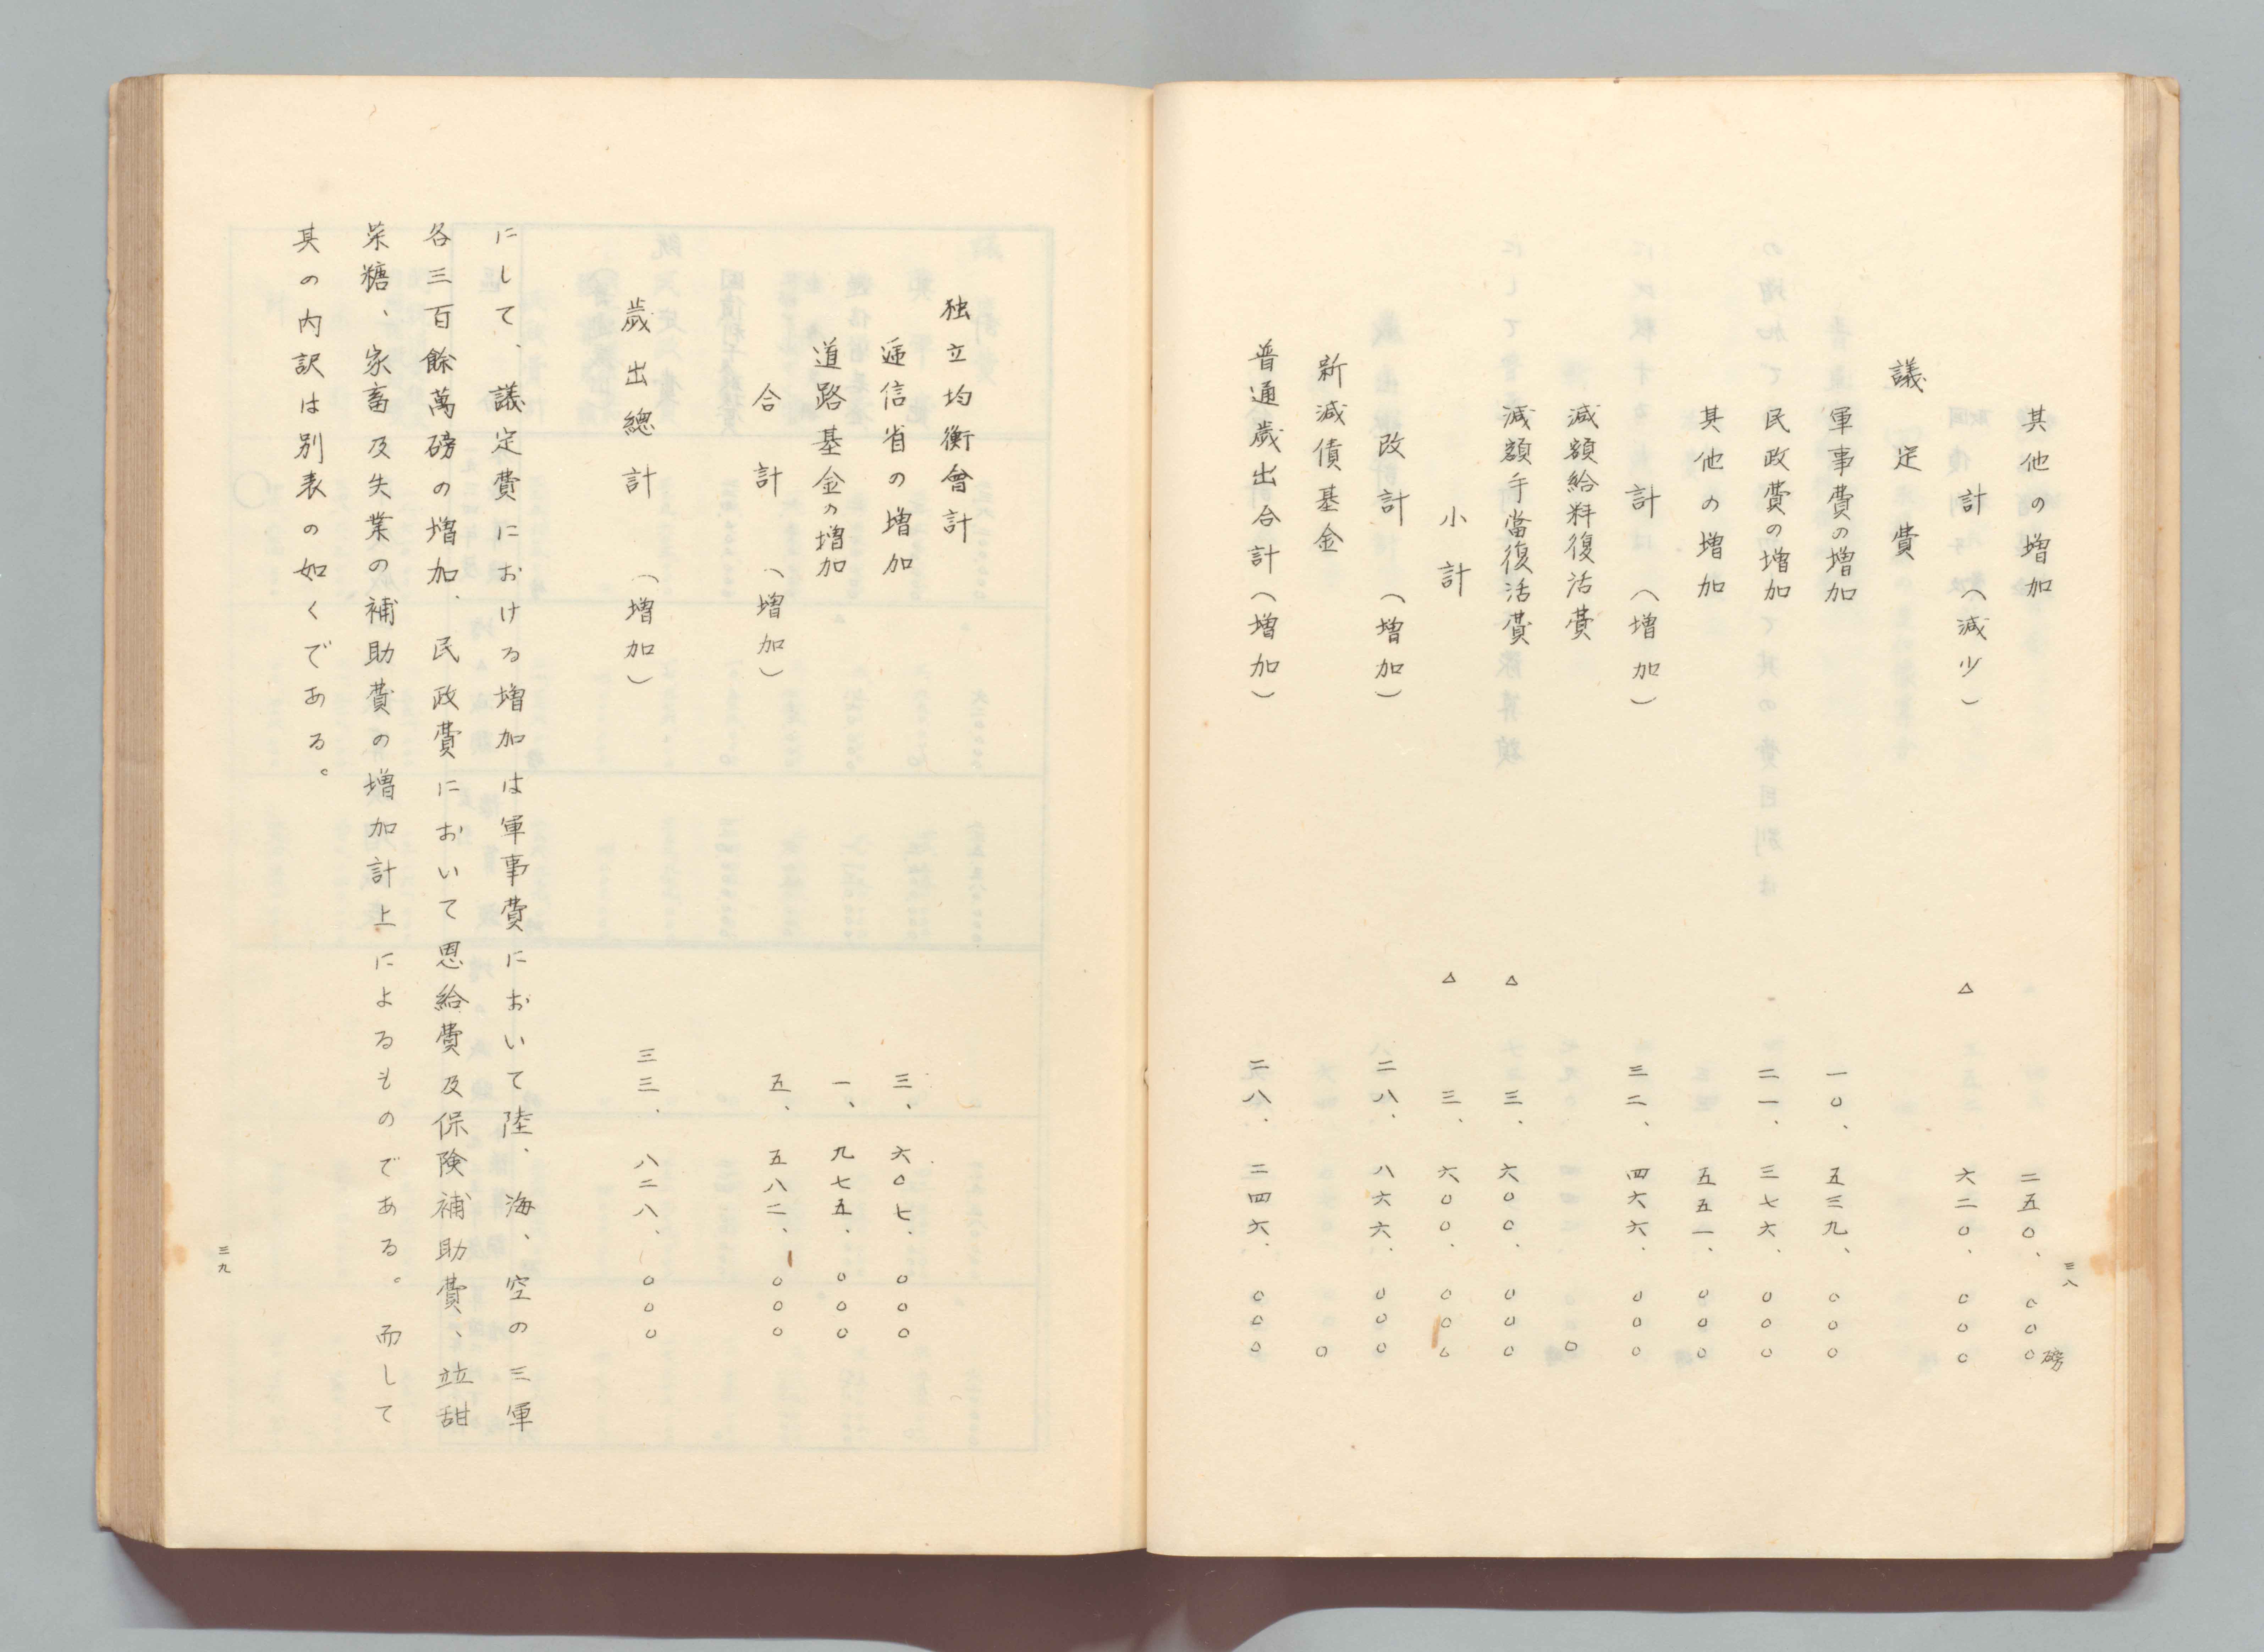 其他の増加　二五〇、〇〇〇磅
計（減少）　△　六二〇、〇〇〇
議定費
軍事費の増加　一〇、五三九、〇〇〇
民政費の増加　二一、三七六、〇〇〇
其他の増加　五五一、〇〇〇
計（増加）　三二、四六六、〇〇〇
減額給料復活費　〇
減額手當復活費　△　三、六〇〇、〇〇〇
小計　△　三、六〇〇、〇〇〇
改計（増加）　二八、八六六、〇〇〇
新減債基金　〇
普通歳出合計（増加）　二八、二四六、〇〇〇
三八
独立均衡會計
逓信省の増加　三、六〇七、〇〇〇
道路基金の増加　一、九七五、〇〇〇
合計（増加）　五、五八二、〇〇〇
歳出總計（増加）　三三、八二八、〇〇〇
にして、議定費における増加は軍事費において陸、海、空の三軍
各三百餘萬磅の増加、民政費において恩給費及保険補助費、竝甜
菜糖、家畜及失業の補助費の増加計上によるものである。而して
其の内訳は別表の如くである。
三九